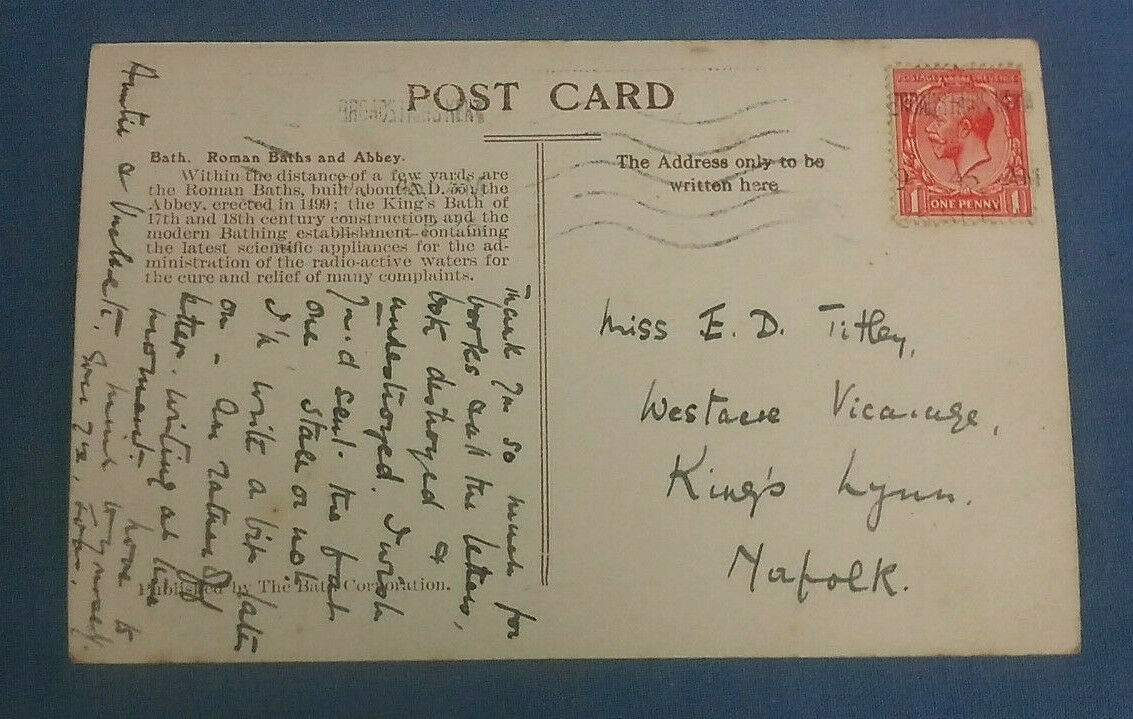 POST CARD
Bath. Roman Baths and Abbey.
Within the distance of a few yards are
the Roman Baths, built about A.D. 55; the
Abbey, erected in 1499; the King's Bath of
17th and 18th century construction, and the
modern Bathing establishment containing
the latest scientific appliances for the ad-
ministration of the radio-active waters for
the cure and relief of many complaints.
The Address only to be
written here
POSTAGE REVENUE
ONE PENNY
1 1
Miss E. D. Titley,
Westacre Vicarage,
King's Lynn.
Norfolk.
Thank you so much for
books all the letters,
both destroyed &
undestroyed. I wish
you'd sent the fruit
one stale or not
I'll write a bit later
on - Am rather
letter-writing at the
moment. have to
Auntie & mind my
Published by The Bath Corporation.